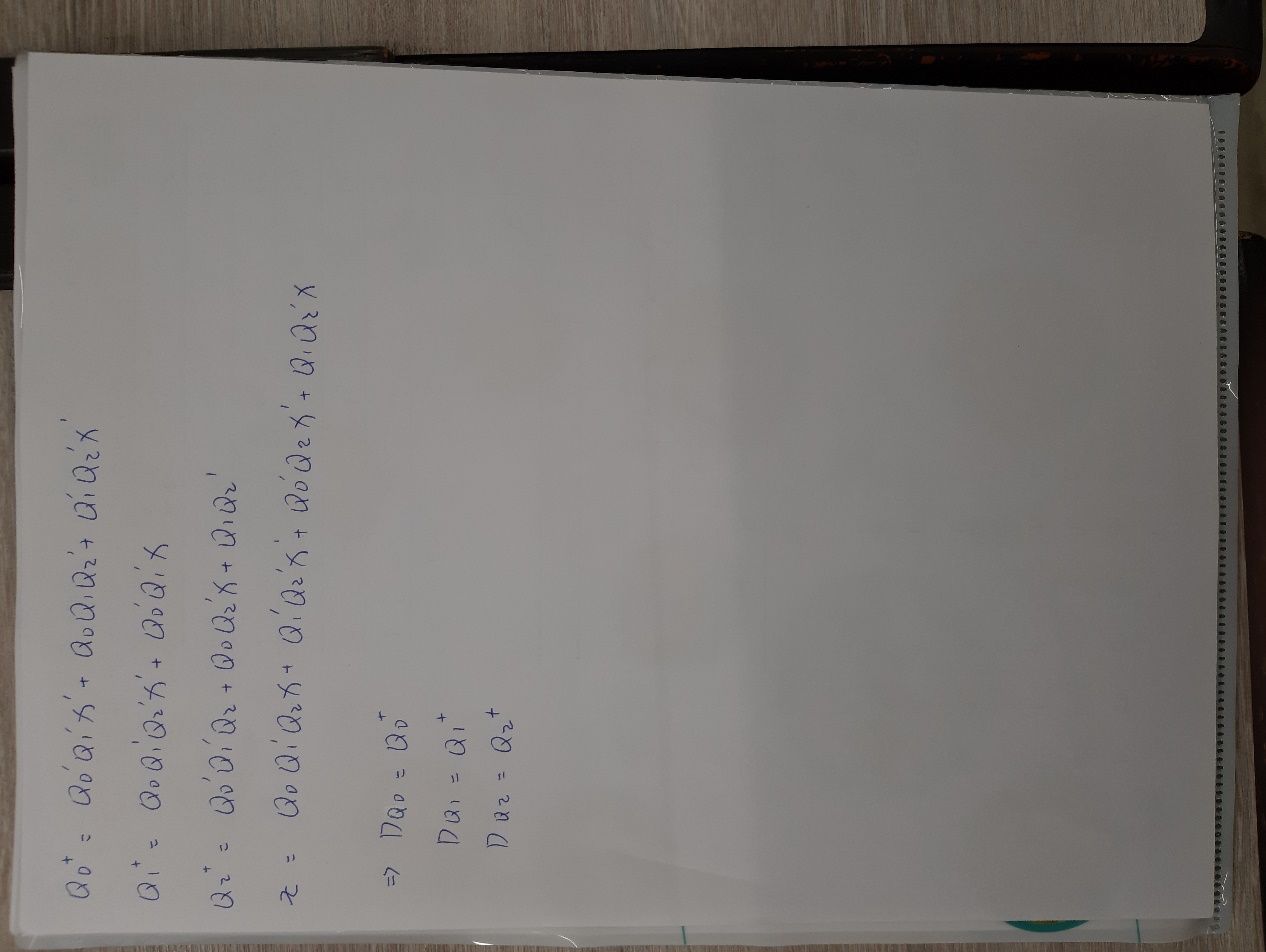 Q0⁺ = Q0'Q1'X' + Q0Q1Q2' + Q1'Q2'X'
Q1⁺ = Q0Q1'Q2'X' + Q0'Q1'X
Q2⁺ = Q0'Q1'Q2 + Q0Q2'X + Q1Q2'
Z = Q0Q1'Q2X + Q1'Q2'X' + Q0'Q2X' + Q1Q2'X
⇒ DQ0 = Q0⁺
DQ1 = Q1⁺
DQ2 = Q2⁺